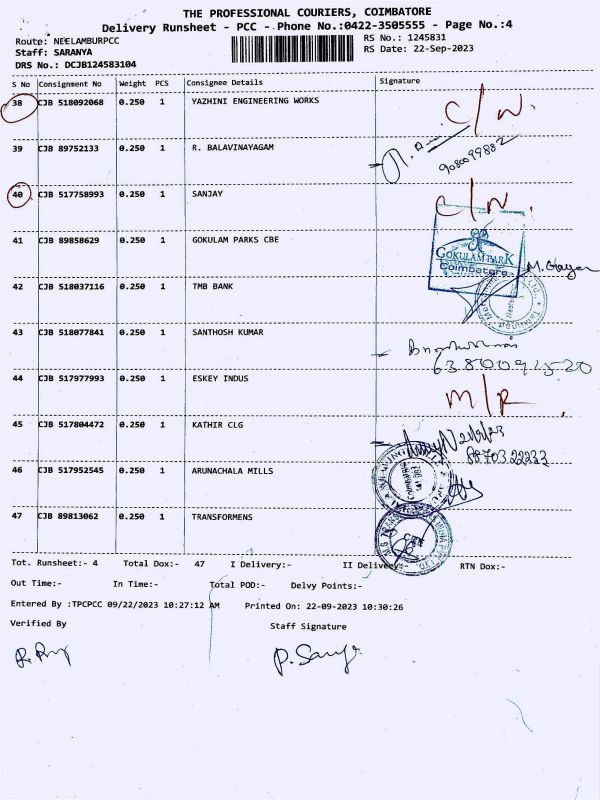 THE PROFESSIONAL COURIERS, COIMBATORE
Delivery Runsheet - PCC - Phone No.:0422-3505555 - Page No.:4
Route: NEELAMBURPCC RS No.: 1245831
Staff: SARANYA RS Date: 22-Sep-2023
DRS No.: DCJB124583104
S No Consignment No Weight PCS Consignee Details Signature
38 CJB 518092068 0.250 1 YAZHINI ENGINEERING WORKS C/N.
39 CJB 89752133 0.250 1 R. BALAVINAYAGAM
9080099882
40 CJB 517758993 0.250 1 SANJAY C/N.
41 CJB 89858629 0.250 1 GOKULAM PARKS CBE GOKULAM PARK
Coimbatore
42 CJB 518037116 0.250 1 TMB BANK
43 CJB 518077841 0.250 1 SANTHOSH KUMAR
44 CJB 517977993 0.250 1 ESKEY INDUS M/R
45 CJB 517804472 0.250 1 KATHIR CLG
8870322233
46 CJB 517952545 0.250 1 ARUNACHALA MILLS
47 CJB 89813062 0.250 1 TRANSFORMENS
Tot. Runsheet:- 4 Total Dox:- 47 I Delivery:- II Delivery:- RTN Dox:-
Out Time:- In Time:- Total POD:- Delvy Points:-
Entered By :TPCPCC 09/22/2023 10:27:12 AM Printed On: 22-09-2023 10:30:26
Verified By Staff Signature